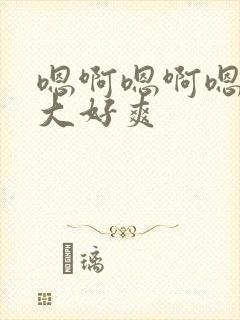 嗯啊嗯啊嗯
大好爽
璃